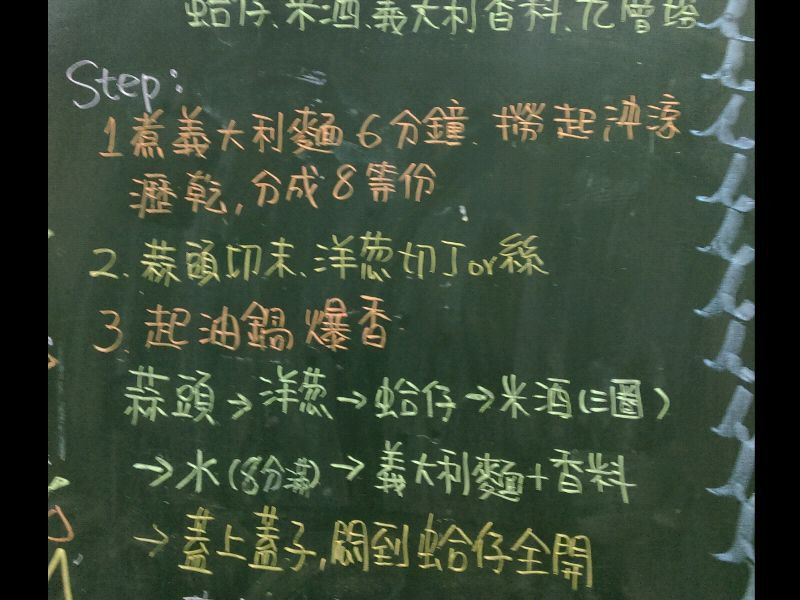 蛤仔、米酒、義大利香料、九層塔
Step:
1 煮義大利麵 6 分鐘、撈起沖涼
瀝乾,分成 8 等份
2. 蒜頭切末、洋葱切丁or絲
3. 起油鍋爆香
蒜頭→洋葱→蛤仔→米酒(三圈)
→水(8分滿)→義大利麵+香料
→蓋上蓋子,悶到蛤仔全開